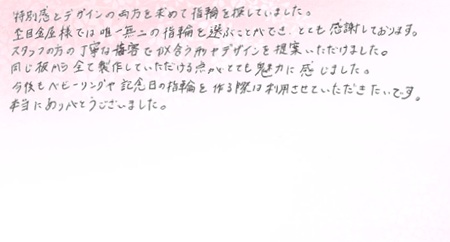 特別感とデザインの両方を求めて指輪を探していました。
杢目金屋様では唯一無二の指輪を選ぶことができ、とても感謝しております。
スタッフの方の丁寧な接客で似合う形やデザインを提案いただけました。
同じ板から全て製作していただける点がとても魅力に感じました。
今後もベビーリングや記念日の指輪を作る際は利用させていただきたいです。
本当にありがとうございました。